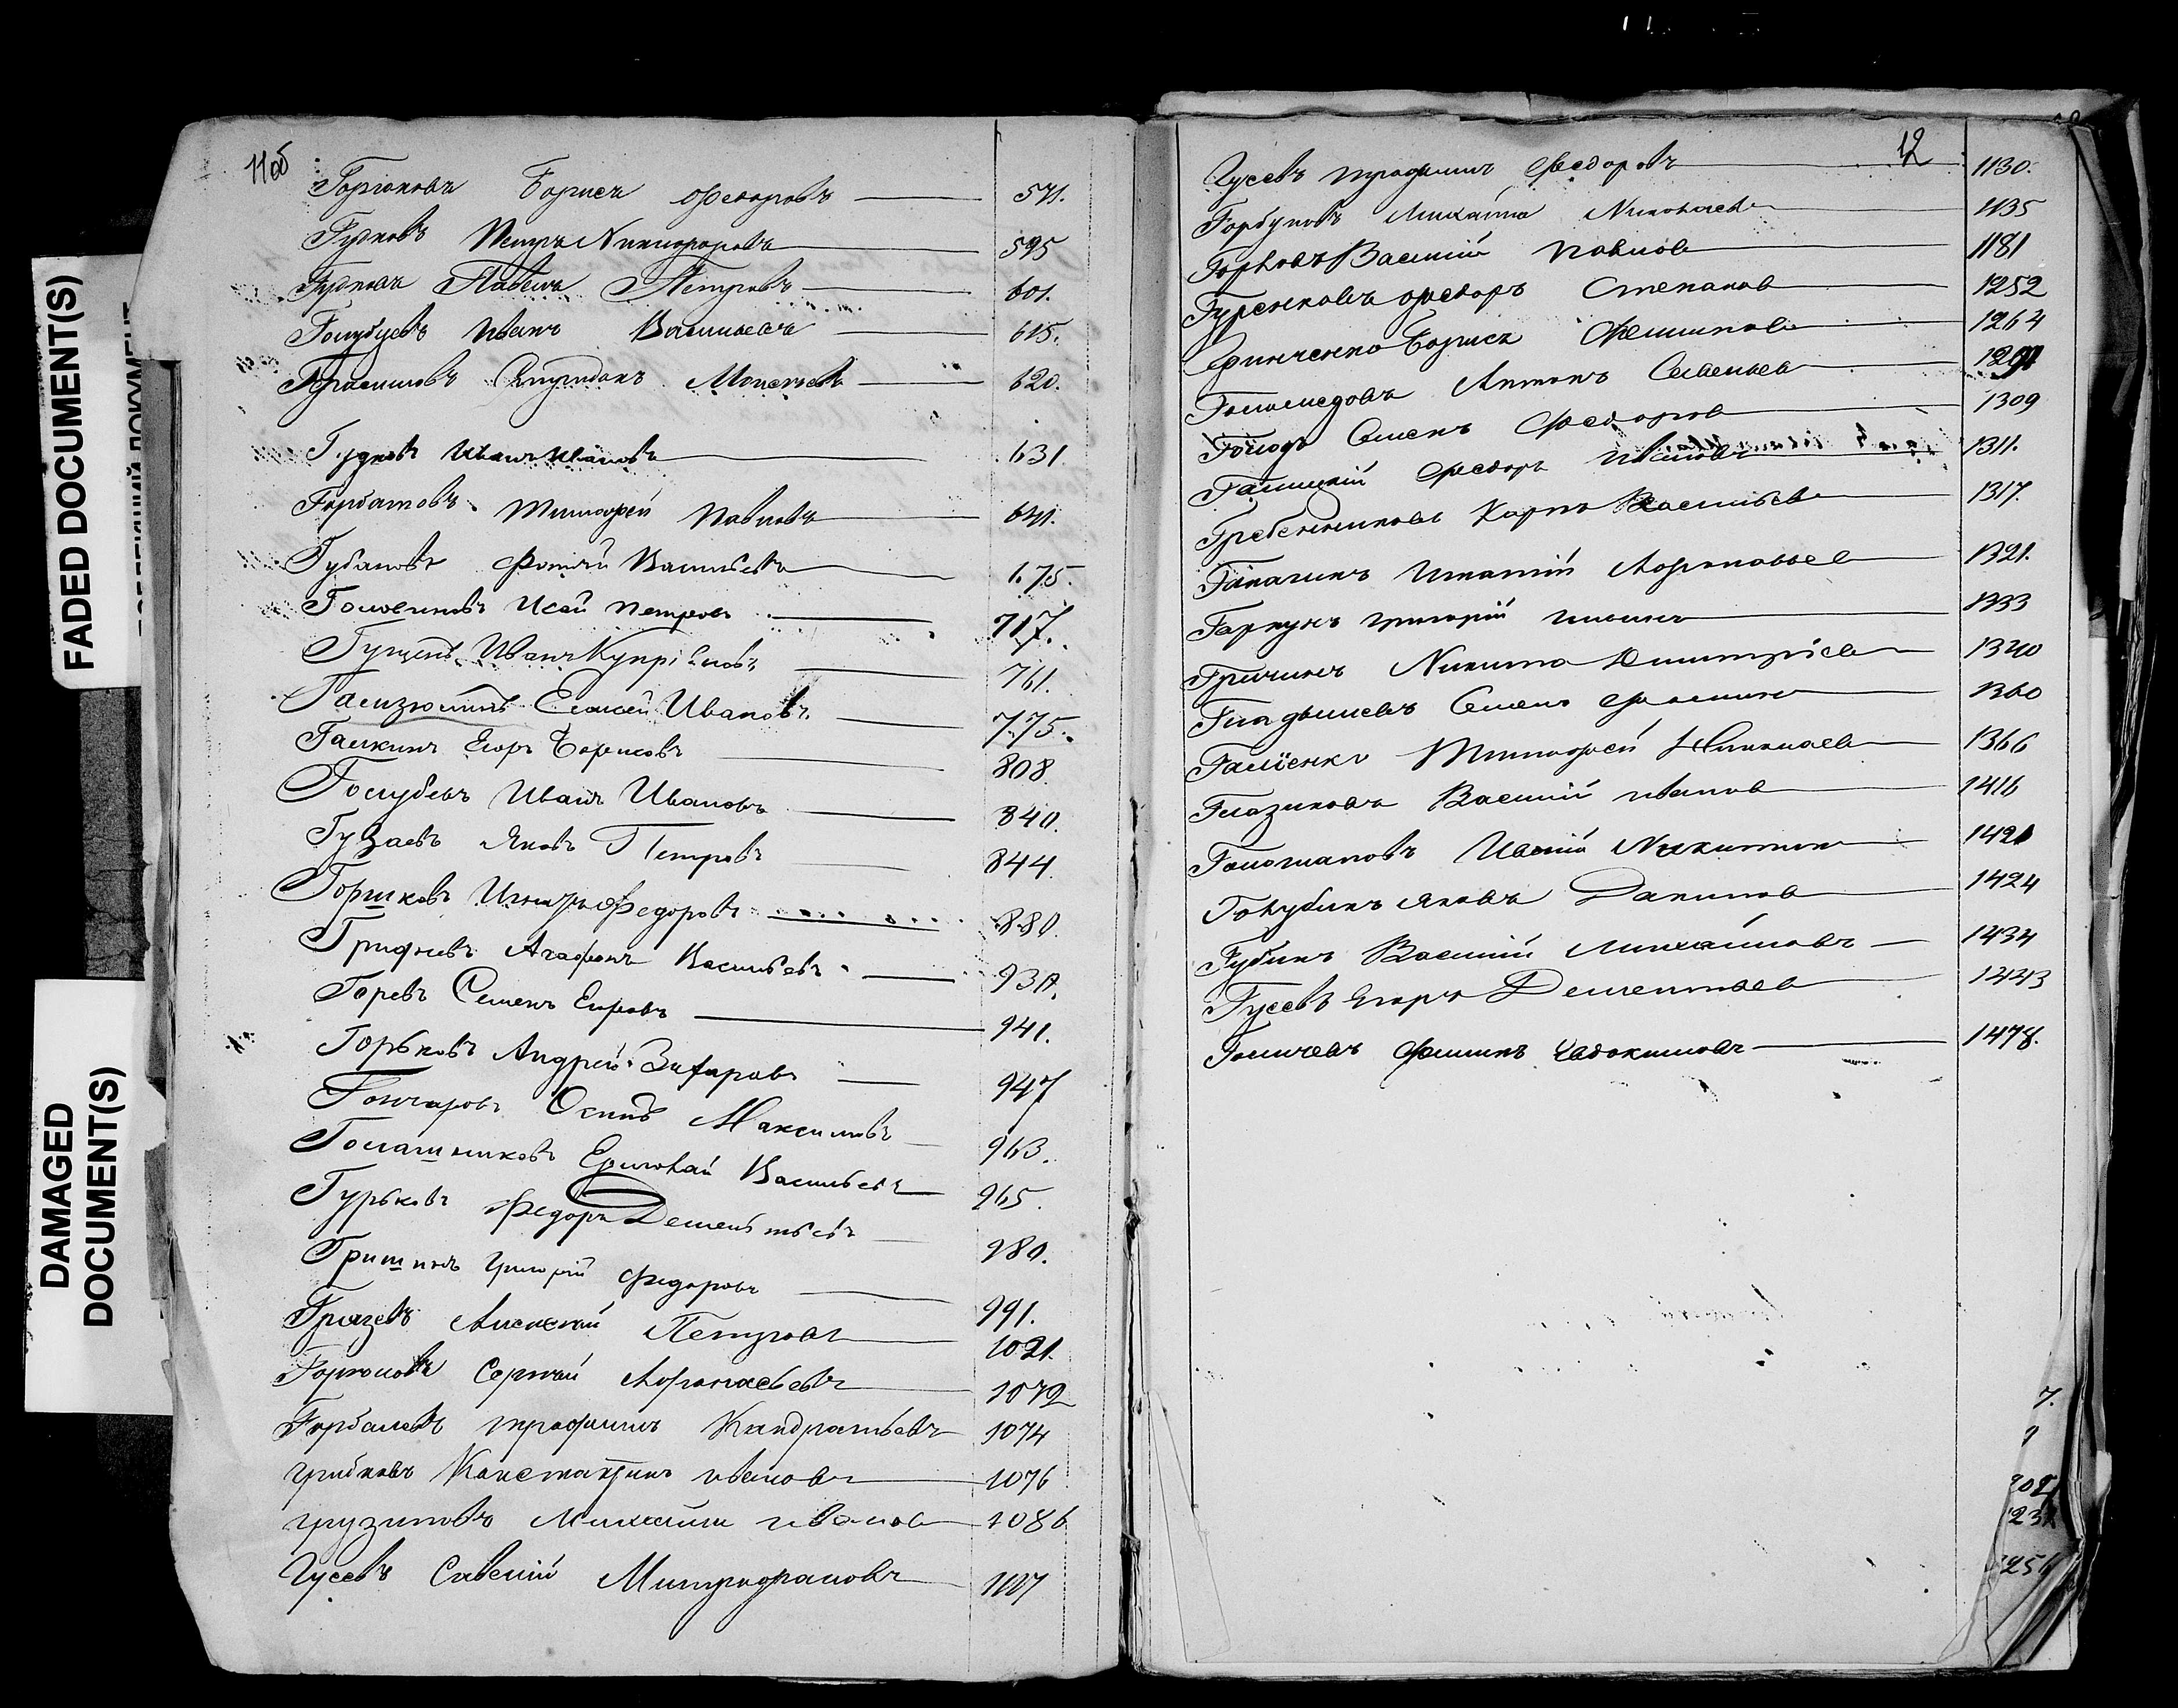 FADED DOCUMENT(S)
DAMAGED
DOCUMENT(S)
11об
Горюновъ Борисъ Федоровъ 571.
Гудковъ Петръ Никифоровъ 595
Гудковъ Павелъ Петровъ 601.
Голубцевъ Иванъ Васильевъ 615.
Герасимовъ Спиридонъ Моисеевъ 620.
Гудковъ Иванъ Ивановъ 631
Горбатовъ Тимофей Павловъ 641.
Губановъ Фотий Васильевъ 675.
Головиновъ Исай Петровъ 717.
Гущенъ Иванъ Купріяновъ 761.
Елисей Ивановъ 775.
Галкинъ Егоръ Борисовъ 808.
Голубевъ Иванъ Ивановъ 840.
Гузаевъ Яковъ Петровъ 844.
Горшковъ Федоровъ 880.
Агафонъ Васильевъ 930.
Горевъ Семенъ Егоровъ 941.
Горьковъ Андрей Захаровъ 947
Гончаровъ Осипъ Максимовъ 963.
Ермолай Васильевъ 965.
Гурьковъ Федоръ Дементьевъ 980.
Гришинъ Григорій Федоровъ 991.
Грязевъ Алексей Петровъ 1021.
Сергей Афонасьевъ 1072
Горбалевъ Трофимъ Кандратьевъ 1074
Грибковъ Константинъ Ивановъ 1076
Грузиновъ Михаилъ Иванов 1086
Гусевъ Савелій Митрофановъ 1107
12
Гусевъ Трофимъ Федоровъ 1130.
Горбуновъ Михаила Николаев 1135
Василій Павлов 1181
Гуренковъ Федоръ Степанов 1252
Борисъ Филипов 1264
Антонъ Савельев
Голодъ Семенъ Федоров 1309
Галицкій Федоръ Иванов 1311.
Гребенниковъ Карпъ Васильев 1317.
Галагинъ Игнатій Афонасьев 1321.
Гаркунъ Григорій Ильинъ 1333
Гричинъ Никита Дмитріев 1340
Гладышевъ Семенъ 1360
Тимофей Николаев 1366
Глазуновъ Василій Иванов 1416
Никитин 1421
Голубинъ Яковъ Данилов 1424
Губинъ Василій Михайловъ 1434
Гусевъ Егоръ Дементьев 1443
Голичевъ Филипъ Евдокимовъ 1478.